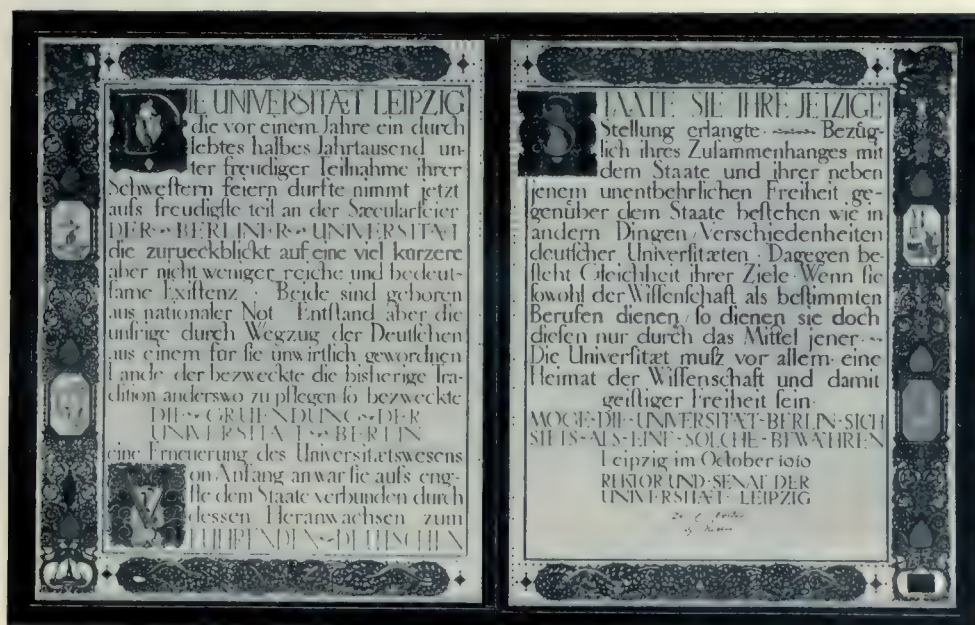 DIE UNIVERSITÆT LEIPZIG
die vor einem Jahre ein durch
lebtes halbes Jahrtausend un-
ter freudiger Teilnahme ihrer
Schweſtern feiern durfte nimmt jetzt
aufs freudigſte teil an der Sæcularfeier
DER BERLINER UNIVERSITÄT
die zurueckblickt auf eine viel kürzere
aber nicht weniger reiche und bedeut-
ſame Exiſtenz · Beide sind geboren
aus nationaler Not · Entſtand aber die
unſrige durch Wegzug der Deutſchen
aus einem für ſie unwirtlich gewordnen
Lande der bezweckte die bisherige Tra-
dition anderswo zu pflegen ſo bezweckte
DIE GRUENDUNG DER
UNIVERSITÄT BERLIN
eine Erneuerung des Universitætswesens
Von Anfang an war ſie aufs eng-
ſte dem Staate verbunden durch
dessen Heranwachsen zum
FUEHRENDEN DEUTSCHEN
STAATE SIE IHRE JETZIGE
Stellung erlangte · Bezüg-
lich ihres Zuſammenhanges mit
dem Staate und ihrer neben
jenem unentbehrlichen Freiheit ge-
genüber dem Staate beſtehen wie in
andern Dingen Verschiedenheiten
deutſcher Univerſitæten · Dagegen be-
ſteht Gleichheit ihrer Ziele · Wenn ſie
ſowohl der Wiſſenſchaft als beſtimmten
Berufen dienen / ſo dienen sie doch
dieſen nur durch das Mittel jener ·
Die Univerſitæt muſz vor allem eine
Heimat der Wiſſenſchaft und damit
geiſtiger Freiheit ſein ·
MÖGE · DIE · UNIVERSITÄT · BERLIN · SICH
STETS · ALS · EINE · SOLCHE · BEWÄHREN
Leipzig im October 1910
REKTOR UND SENAT DER
UNIVERSITÆT LEIPZIG